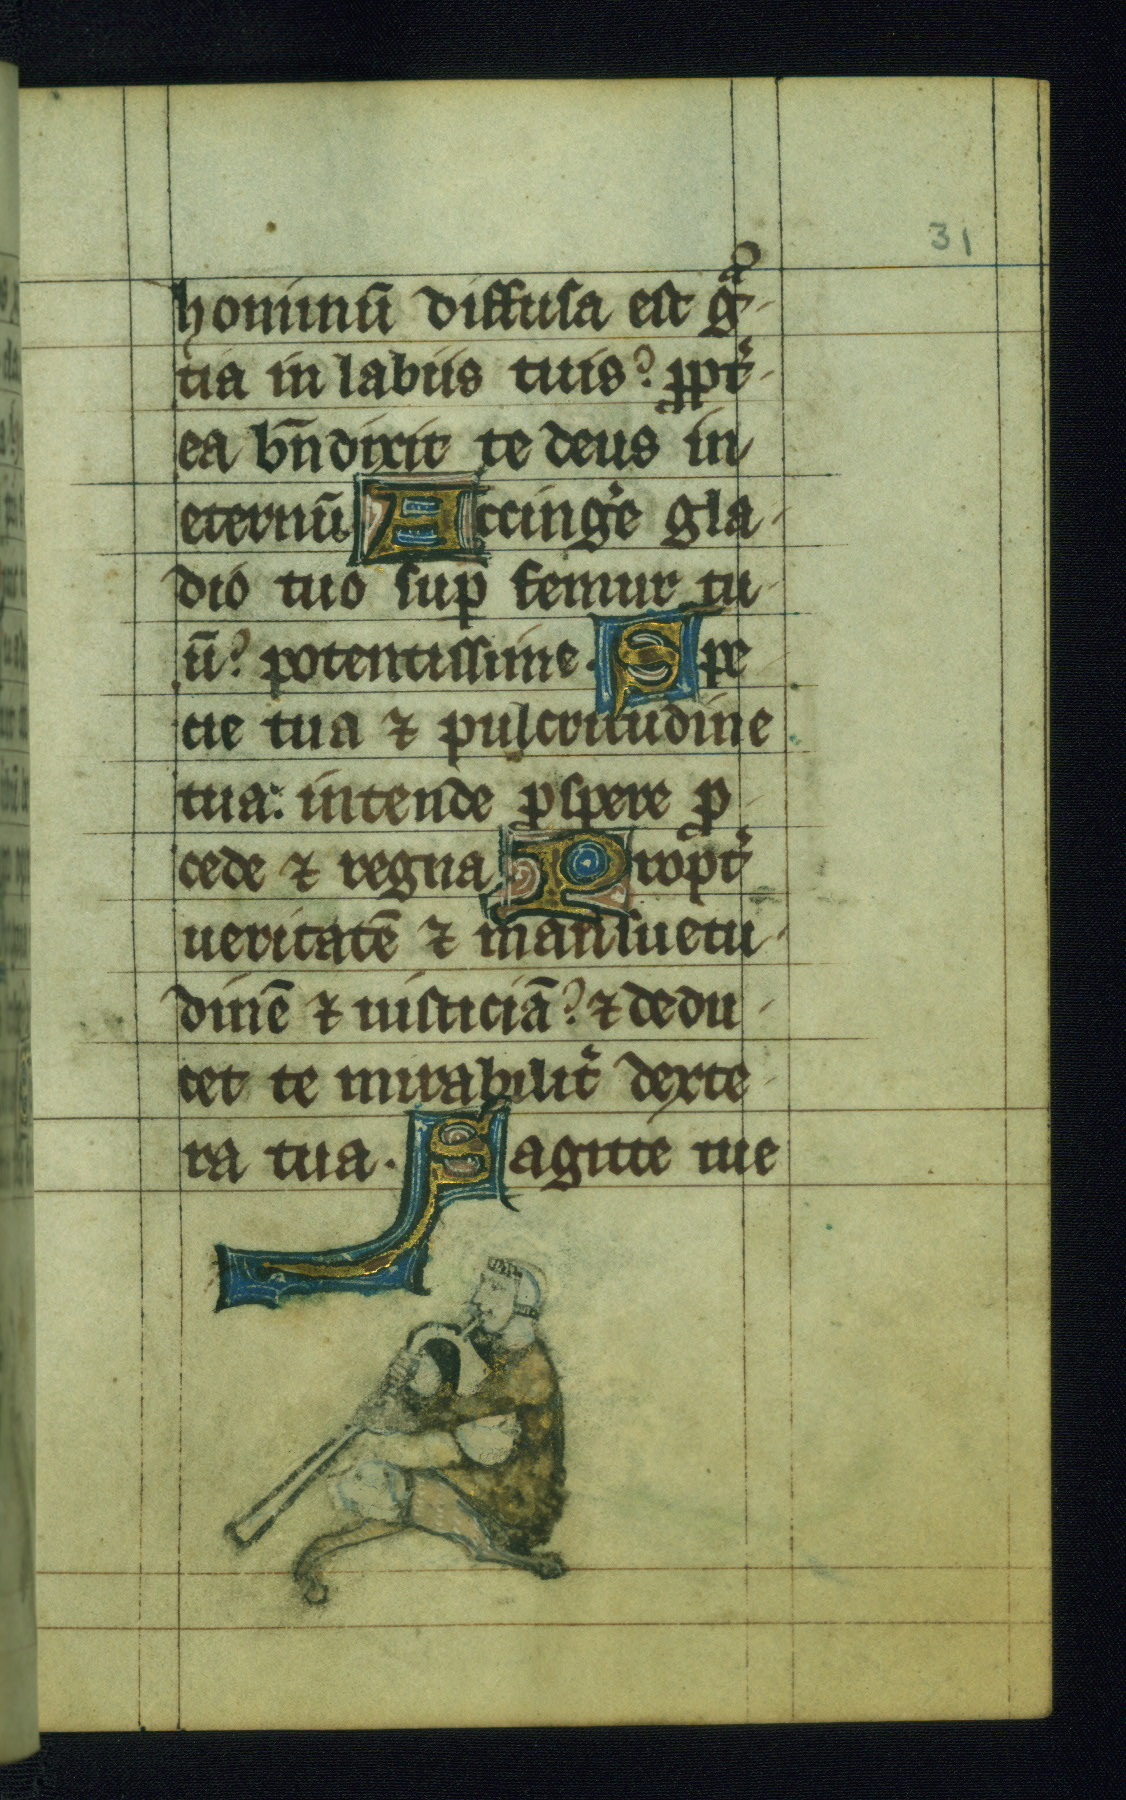 31
hominū diffusa est gͣ
tia in labiis tuis? ꝓpt᷑
ea bn̄dixit te deus in
eternū. Accing᷑e gla
dio tuo suꝑ femur tu
ū? potentissime. Spe
cie tua ⁊ pulcritudine
tua: intende ꝓspere ꝓ
cede ⁊ regna. Propt᷑
ueritatē ⁊ mansuetu
dinē ⁊ iusticiā? ⁊ dedu
cet te mirabilit᷑ dexte
ra tua. Sagitte tue